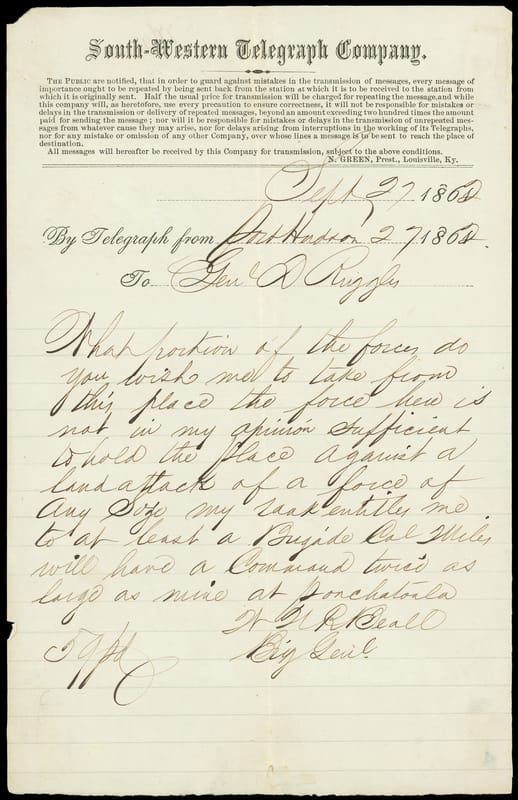 South-Western Telegraph Company.
THE PUBLIC are notified, that in order to guard against mistakes in the transmission of messages, every message of
importance ought to be repeated by being sent back from the station at which it is to be received to the station from
which it is originally sent. Half the usual price for transmission will be charged for repeating the message, and while
this company will, as heretofore, use every precaution to ensure correctness, it will not be responsible for mistakes or
delays in the transmission or delivery of repeated messages, beyond an amount exceeding two hundred times the amount
paid for sending the message; nor will it be responsible for mistakes or delays in the transmission of unrepeated mes-
sages from whatever cause they may arise, nor for delays arising from interruptions in the working of its Telegraphs,
nor for any mistake or omission of any other Company, over whose lines a message is to be sent to reach the place of
destination.
All messages will hereafter be received by this Company for transmission, subject to the above conditions.
N. GREEN, Prest., Louisville, Ky.
Sept 27 1862
By Telegraph from Port Hudson 27 1862.
To Genl D Ruggles
What portion of the forces do
you wish me to take from
this place the force here is
not in my opinion sufficient
to hold the place against a
land attack of a force of
any size my rank entitles me
to at least a Brigade Col Miles
will have a Command twice as
large as mine at Ponchatoula
W N R Beall
Brig Genl